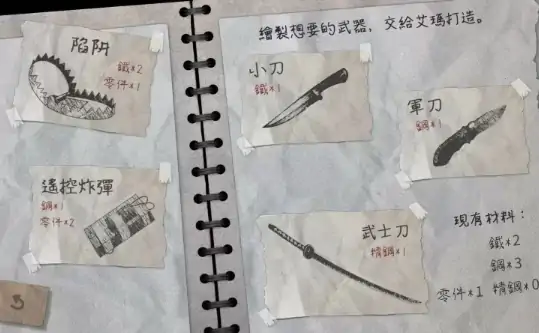 陷阱
鐵×2
零件×1
遙控炸彈
鋼×1
零件×2
5
繪製想要的武器，交給艾瑪打造。
小刀
鐵×1
軍刀
鋼×1
武士刀
精鋼×1
現有材料：
鐵×2
鋼×3
零件×1 精鋼×0